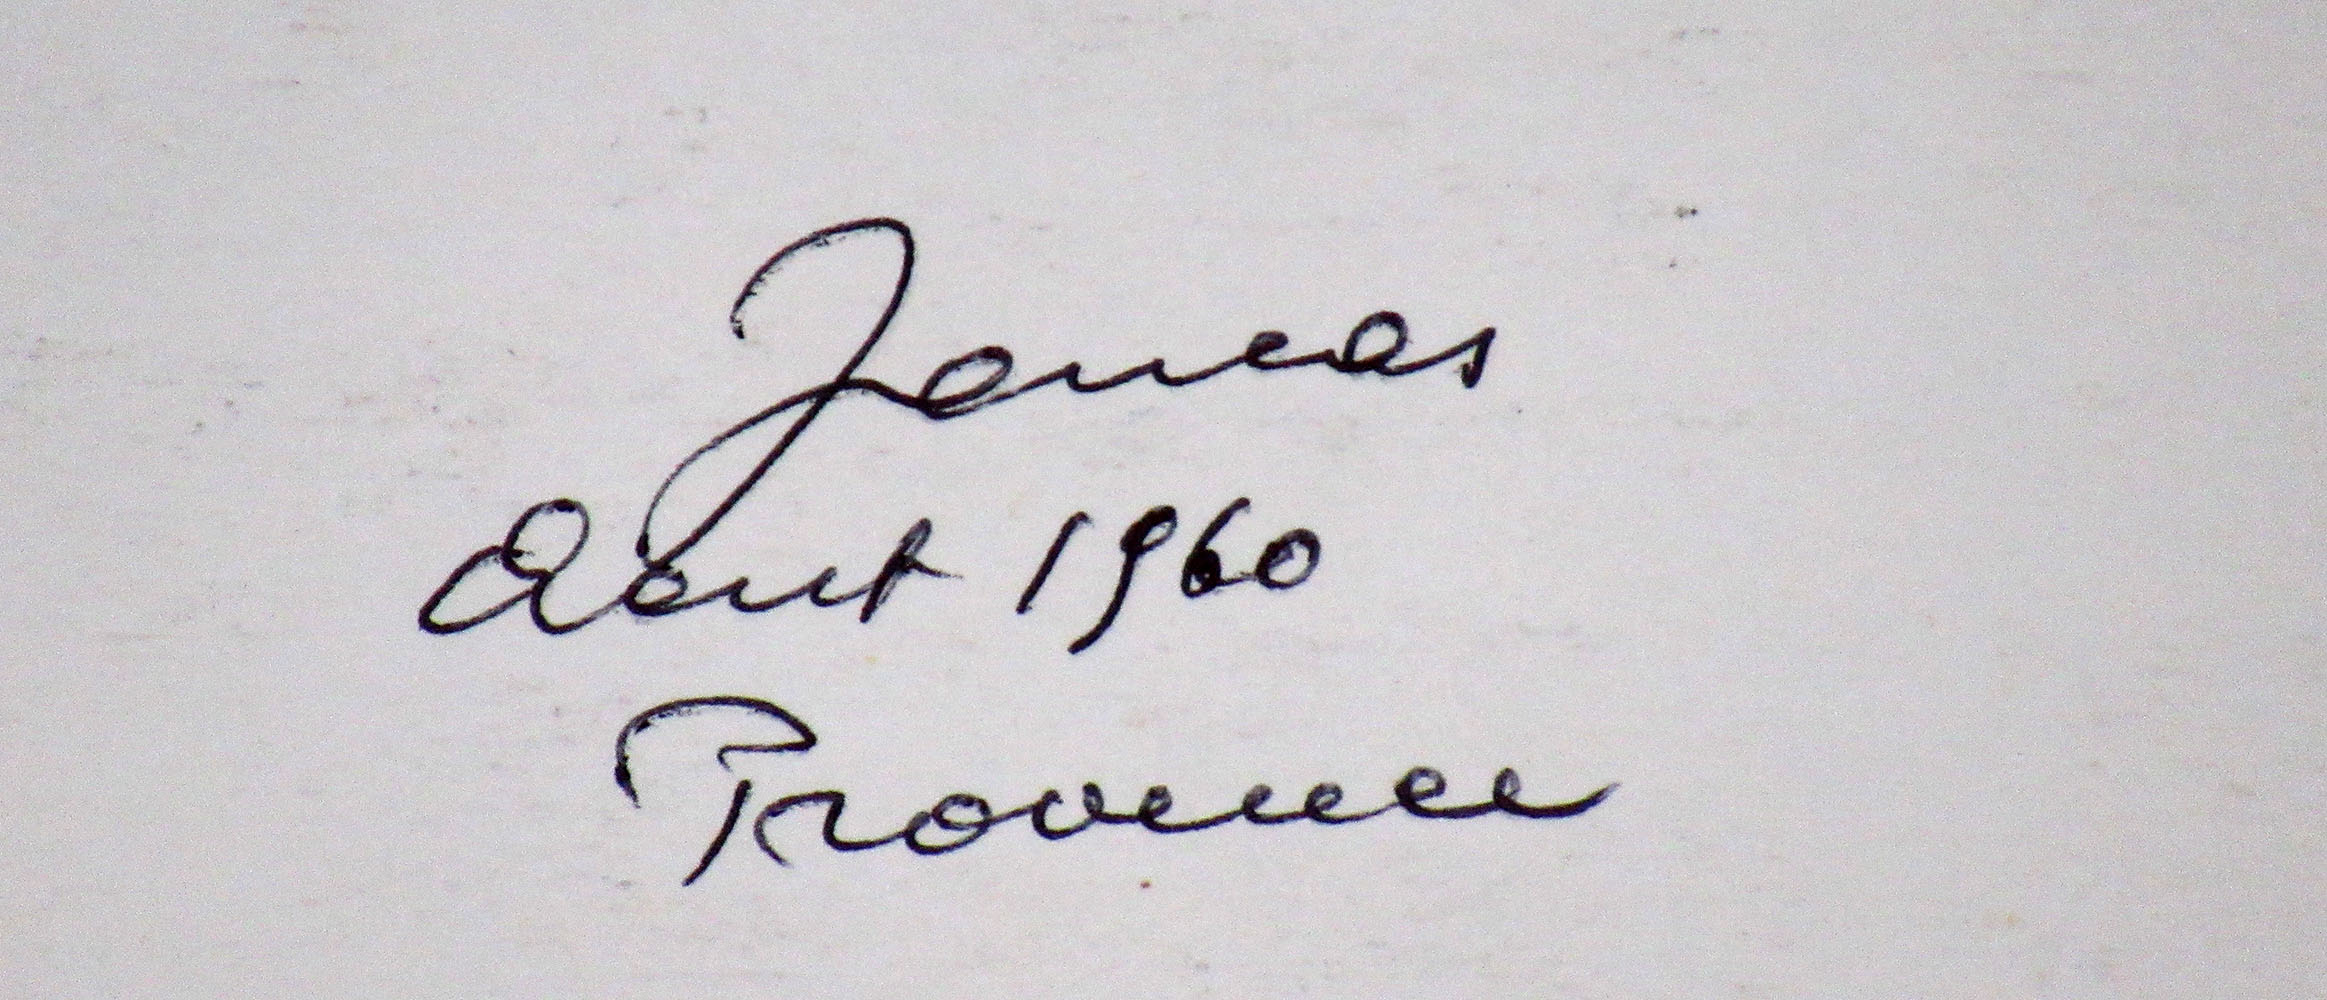 Joucas
Aout 1960
Provence